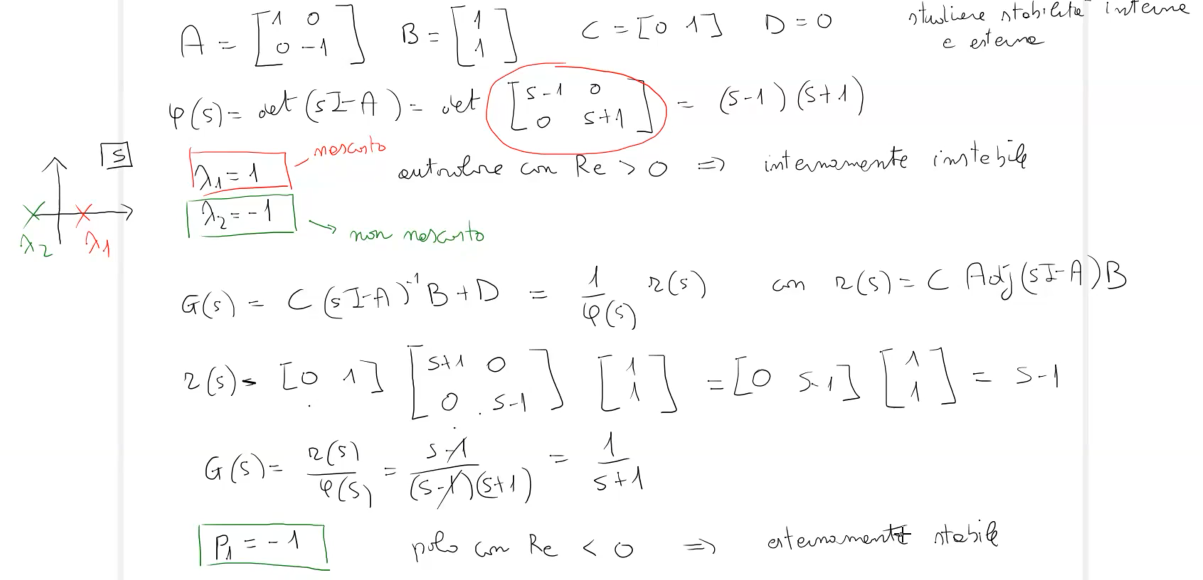 A = [1 0; 0 -1] B = [1; 1] C = [0 1] D = 0 studiare stabilità interna
e esterna
φ(s) = det(sI-A) = det [s-1 0; 0 s+1] = (s-1)(s+1)
S
nascosto
λ₁ = 1 autovalore con Re > 0 ⇒ internamente instabile
λ₂ = -1
non nascosto
λ₂ λ₁
G(s) = C(sI-A)⁻¹B+D = 1/φ(s) r(s) con r(s) = C Adj(sI-A)B
r(s) = [0 1] [s+1 0; 0 s-1] [1; 1] = [0 s-1] [1; 1] = s-1
G(s) = r(s)/φ(s) = (s-1)/((s-1)(s+1)) = 1/(s+1)
P₁ = -1 polo con Re < 0 ⇒ esternamente stabile